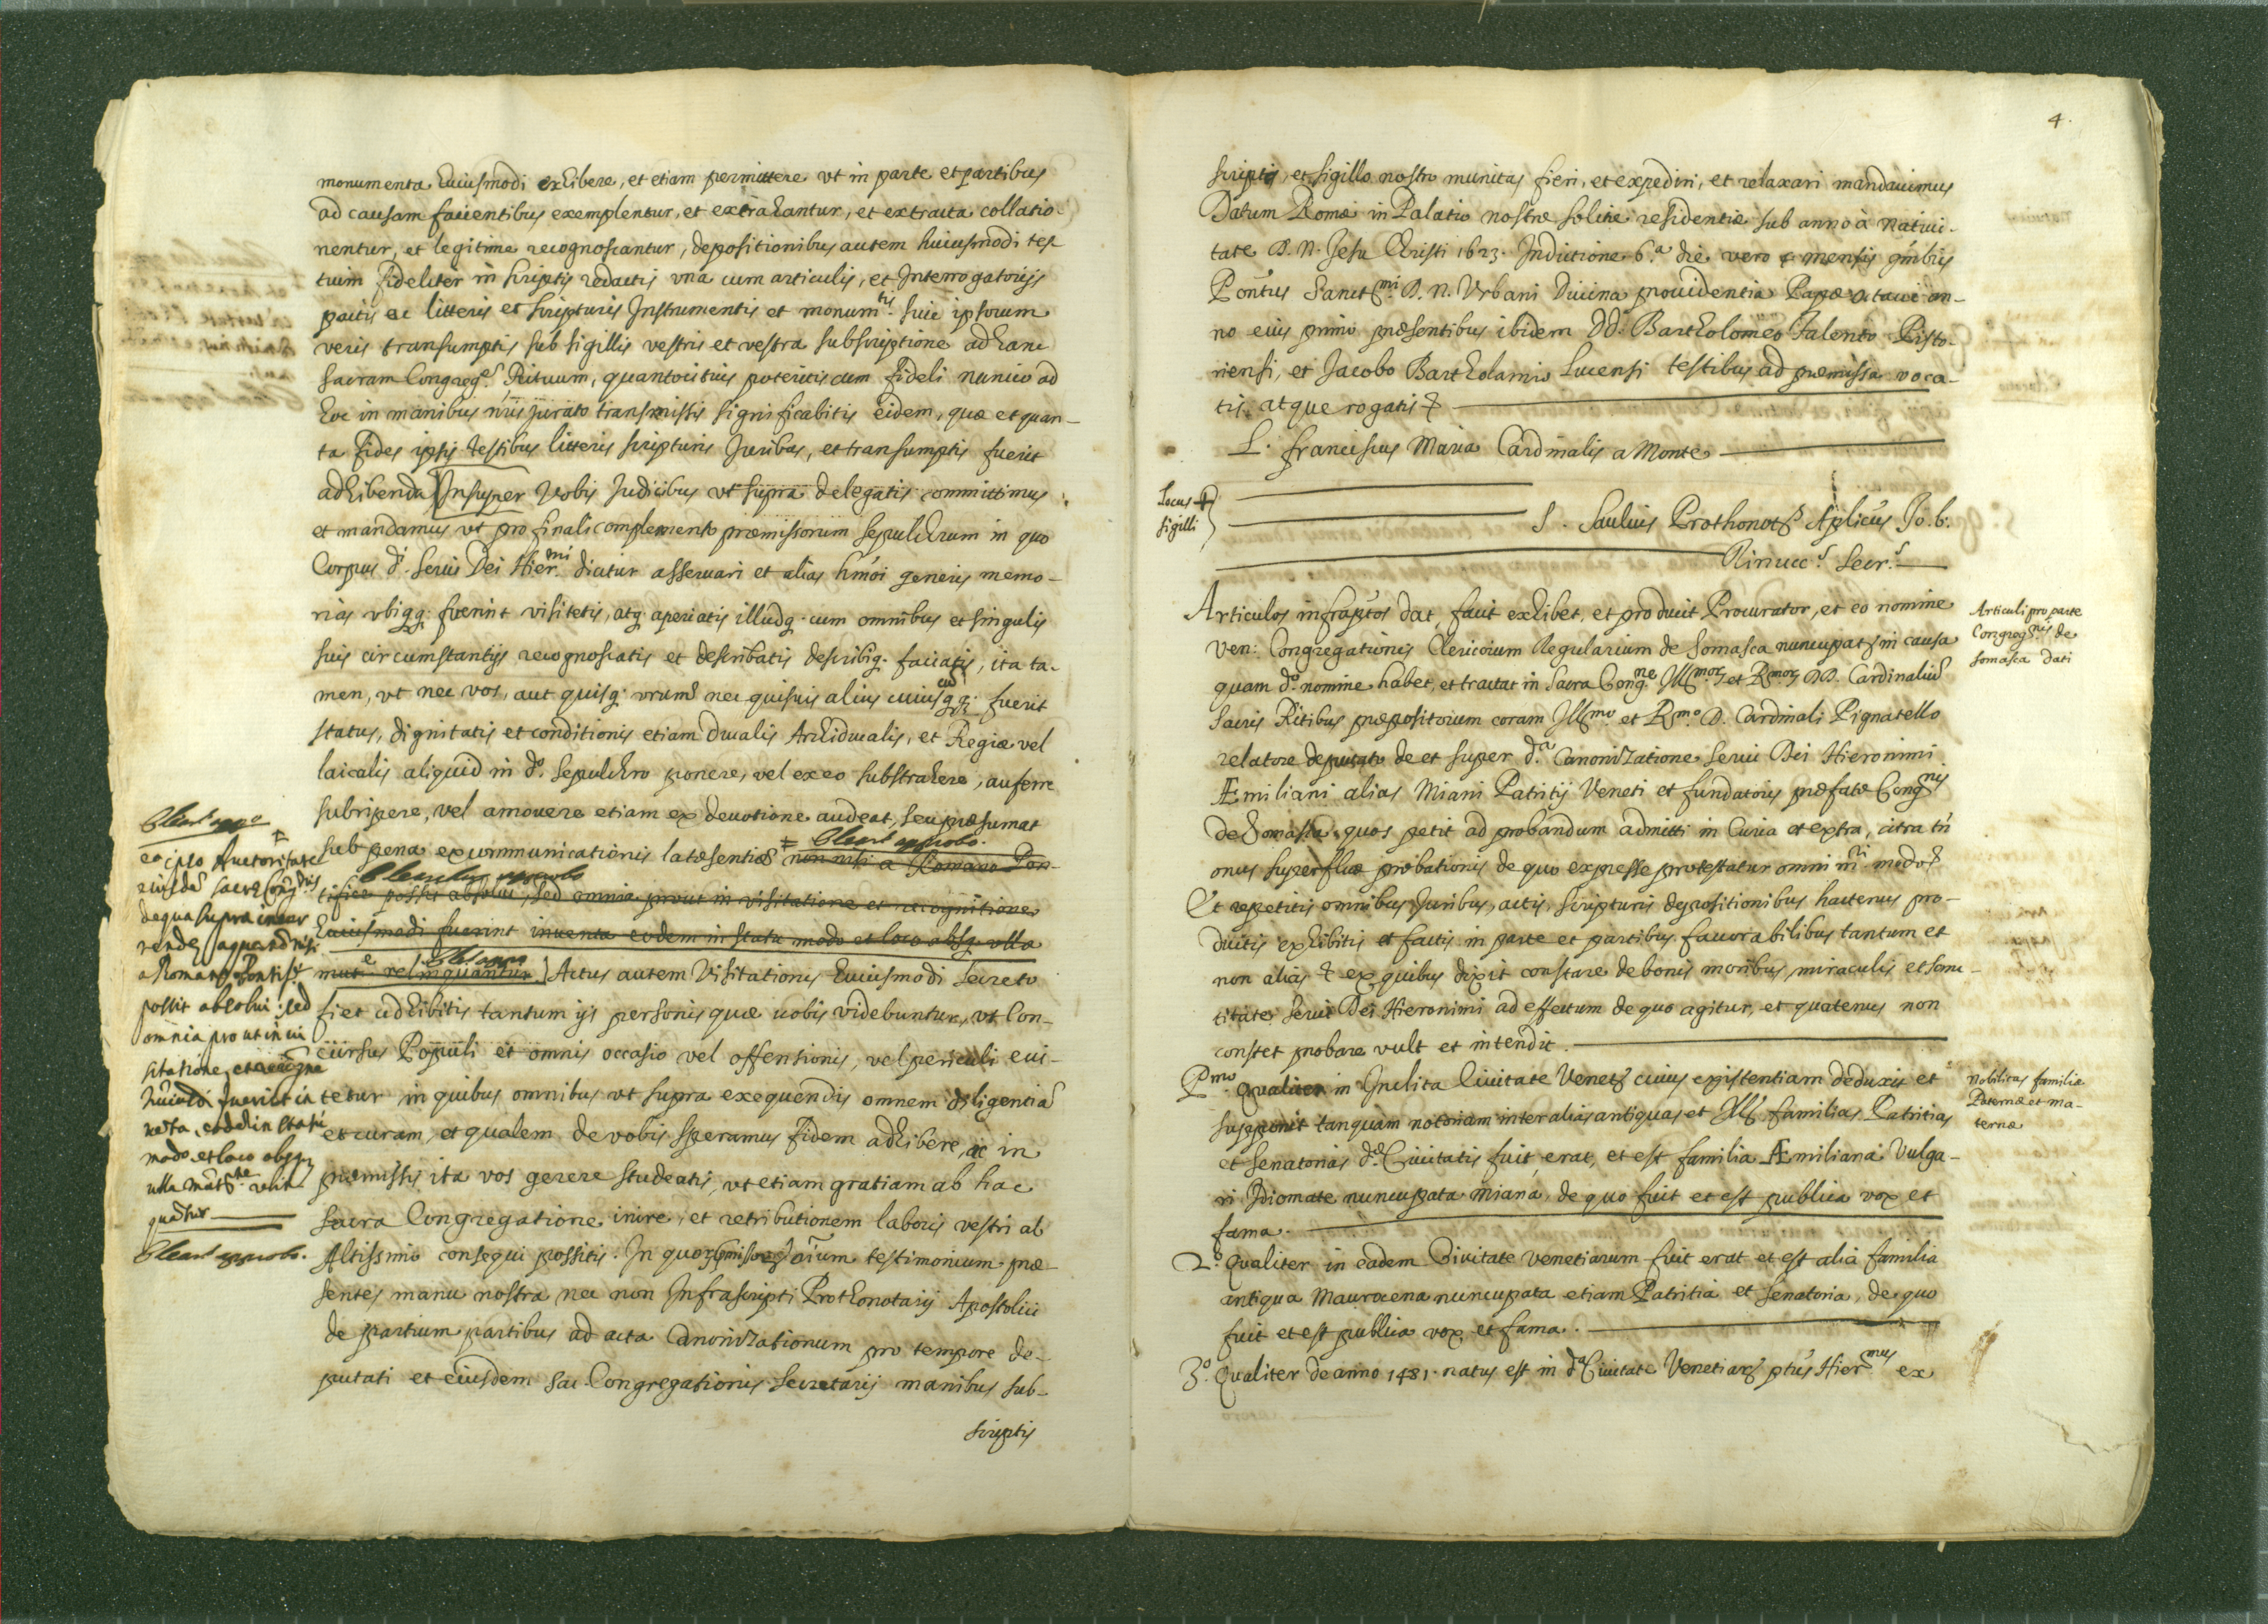 monumenta huiusmodi exhibere, et etiam permittere vt in parte et partibus
ad causam facientibus exemplentur, et extrahantur, et extracta collatio
nentur, et legitime recognoscantur, depositionibus autem huiusmodi tes
tium fideliter in scriptis redactis vna cum articulis, et Interrogatorijs
pactis ac litteris et scripturis Instrumentis et monum.tis siue ipsorum
veris transumptis sub sigillis vestris et vestra subscriptione ad hanc
sacram Congreg.e Rituum, quantocitius poteritis cum fideli nuncio ad
hoc in manibus nris jurato transmissis significabitis eidem, quæ et quan-
ta fides ipsis testibus litteris scripturis Juribus, et transumptis fuerit
adhibenda Insuper Vobis Judicibus vt supra delegatis committimus
et mandamus vt pro finali complemento præmissorum sepulchrum in quo
Corpus d.i serui Dei Hier.mi dicitur asseruari et alias hmoi generis memo-
rias vbiqq. fuerint visitetis, atq. aperiatis illudq. cum omnibus et singulis
suis circumstantijs recognoscatis et describatis describiq. faciatis, ita ta-
men, vt nec vos, aut quisq. vrum nec quisuis alius cuiuscuqq. fuerit
status, dignitatis et conditionis etiam Ducalis Archiducalis, et Regiæ vel
laicalis aliquid in d.o sepulchro ponere, vel ex eo substrahere, auferre
subripere, vel amouere etiam ex deuotione audeat, seu præsumat
sub pena excommunicationis latæ sententiæ non nisi a Romano Pon-
tifice possit absolui, sed omnia prout in visitatione et recognitione
huiusmodi fuerint inuenta eodem in statu modo et loco absq. vlla
mut.e relinquantur Actus autem Visitationis huiusmodi secreto
fiet adhibitis tantum ijs personis quæ uobis videbuntur, vt Con-
cursus Populi et omnis occasio vel offensionis, vel periculi eui-
tetur in quibus omnibus vt supra exequendis omnem diligentia
et curam, et qualem de vobis speramus fidem adhibere, ac in
præmissis ita vos gerere studeatis, vt etiam gratiam ab hac
sacra Congregatione inire, et retributionem laboris vestri ab
Altissimo consequi possitis. In quor omnium testimonium præ-
sentes manu nostra nec non Infrascripti Prothonotarij Apostolici
de partium partibus ad acta Canonizationum pro tempore de-
putati et eiusdem Sac. Congregationis secretarij manibus sub-
scriptis
eo ipso Auctoritate
eiusde sacræ Cong.nis
de qua supra incur
renda a qua non nisi
a Romano Pontif.e
possit absolui: sed
omnia pro ut in vi
sitatione, et recogne
huiusdi fuerint in
uenta, eode in statu
modo et loco absq
ulla mut.ne relin
quatur
4.
scriptis, et sigillo nostro munitas fieri, et expediri, et relaxari mandauimus
Datum Romæ in Palatio nostræ solitæ residentiæ sub anno à Natiui-
tate D. N. Jesu Christi 1623. Indictione 6.a die vero mensis
Pontus Sanct.mi D. N. Vrbani Diuina prouidentia Papæ octaui an-
no eius primo præsentibus ibidem DD. Bartholomeo Talento Pisto-
riensi, et Jacobo Bartholamio Lucensi testibus ad præmissa voca-
tis, atque rogatis
L. Franciscus Maria Cardinalis a Monte
Locus +
sigilli
S. Sauluis Prothonot. Aplicus
Rinucc. Secr.
Articulos infraptos dat, facit exhibet, et producit Procurator, et eo nomine
Ven: Congregationis Clericorum Regularium de Somasca nuncupat in causa
quam d.o nomine habet, et tractat in Sacra Cong.ne Ill.mor et R.mor DD. Cardinaliu
Sacris Ritibus præpositorum coram Ill.mo et R.mo D. Cardinali Pignatello
relatore deputato de et super d.a Canonizatione Serui Dei Hieronimi
Æmiliani alias Miani Patritij Veneti et fundatoris præfatæ Cong.nis
de Somasca quos petit ad probandum admitti in Curia et extra, citra tn
onus superfluæ probationis de quo expresse protestatur omni m.ri modo
Et repetitis omnibus Juribus, actis, scripturis depositionibus hactenus pro-
ductis exhibitis et factis in parte et partibus fauorabilibus tantum et
non alias ex quibus dixit constare de bonis moribus, miraculis et sanc-
titate serui Dei Hieronimi ad effectum de quo agitur, et quatenus non
constet probare vult et intendit.
Articuli pro parte
Congreg.nis de
Somasca dati
P.mo Qualiter in Inclita Ciuitate Venet cuius existentiam deduxit et
supponit tanquam notoriam inter alias antiquas et Ill. familias Patritias
et Senatorias d.æ Ciuitatis fuit, erat, et est familia Æmiliana Vulga-
ri Idiomate nuncupata miana, de quo fuit et est publica vox et
fama.
Nobilitas familiæ
Paternæ et ma-
ternæ
2.o Qualiter in eadem Ciuitate Venetiarum fuit erat et est alia familia
antiqua Maurocena nuncupata etiam Patritia et Senatoria, de quo
fuit et est publica vox et fama.
3.o Qualiter de anno 1481. natus est in d.a Ciuitate Venetiar ptus Hier.mus ex